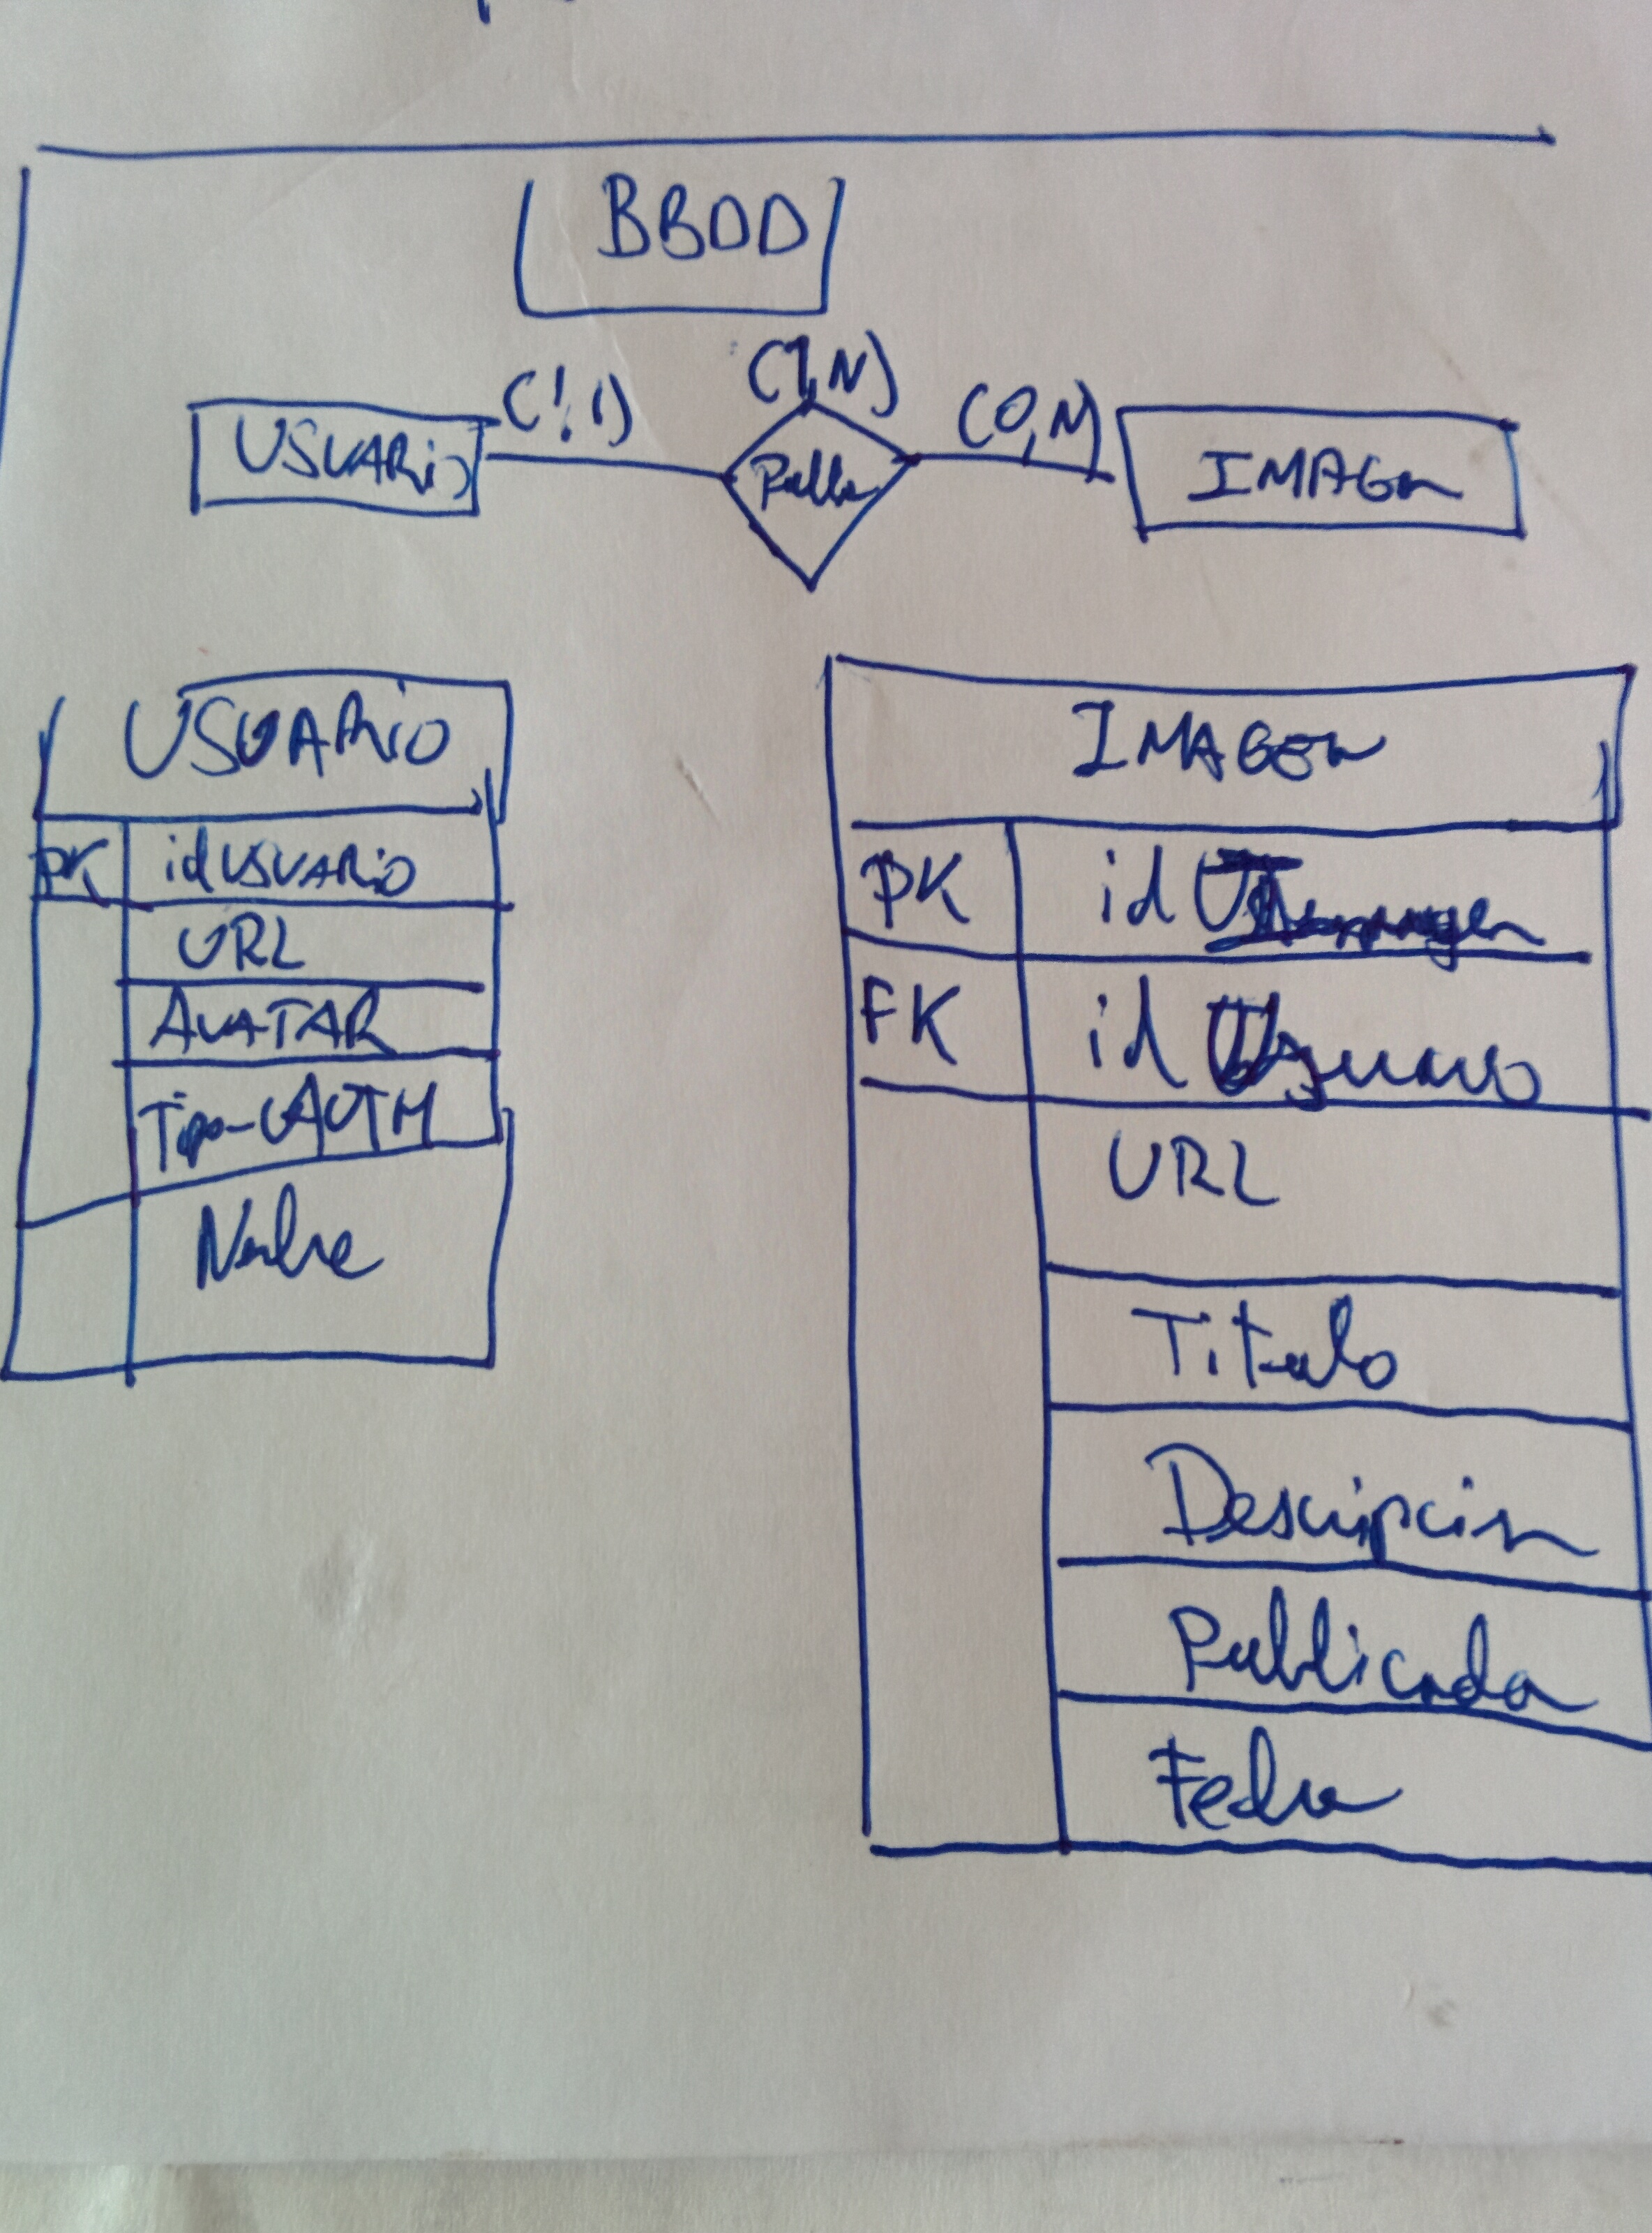 BBDD
(1,N)
(1,1)
(0,N)
USUARIO
IMAGEN
USUARIO
PK idUSUARIO
URL
AVATAR
Tipo-OAUTH
Nombre
IMAGEN
PK id Imagen
FK id Usuario
URL
Titulo
Descripcion
Publicada
Fecha